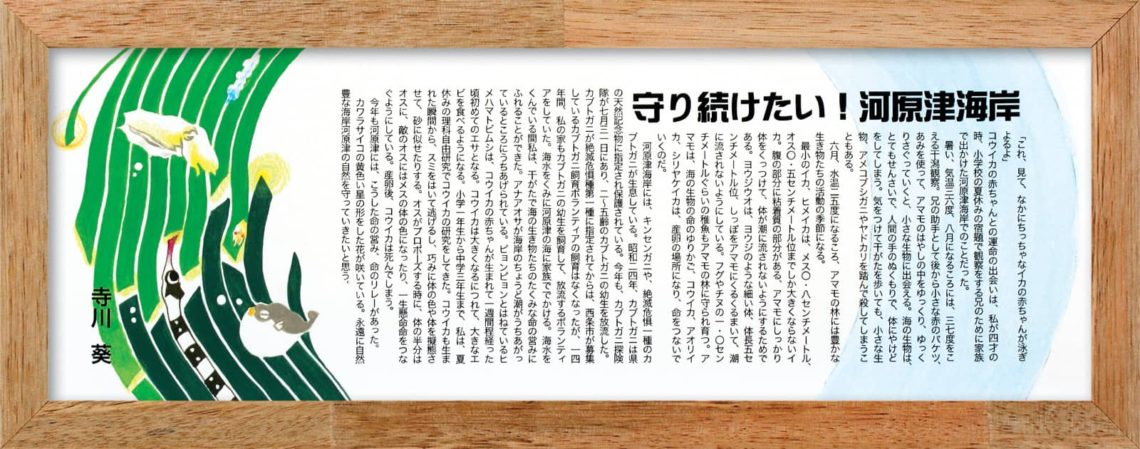 守り続けたい！河原津海岸
「これ、見て、なかにちっちゃなイカの赤ちゃんが泳ぎ
よるよ」
コウイカの赤ちゃんとの運命の出会いは、私が四才の
時、小学校の夏休みの宿題で観察をする兄のために家族
で出かけた河原津海岸でのことだった。
暑い、気温三六度、八月になるころには、三七度をこ
える干潟観察。兄の助手として後から小さな赤のバケツ、
あみを使って、アマモのはやしの中をゆっくり、ゆっく
りさぐっていくと、小さな生物に出会える。海の生物は、
とてもせんさいで、人間の手のぬくもりで、体にやけど
をしてしまう。気をつけて干がたを歩いても、小さな生
物、アメコブシガニやヤドカリを踏んで殺してしまうこ
ともある。
六月、水温二五度になるころ、アマモの林には豊かな
生き物たちの活動の季節になる。
最小のイカ、ヒメイカは、メス〇・八センチメートル、
オス〇・五センチメートル位までしか大きくならないイ
カ。腹の部分に粘着質の部分がある。アマモにしっかり
体をくっつけて、体が潮に流されないようにするためで
ある。ヨウジウオは、ヨウジのような細い体、体長五セ
ンチメートル位、しっぽをアマモにくるくるまいて、潮
に流されないようにしている。フグやチヌの一・〇セン
チメートルぐらいの稚魚もアマモの林に守られ育つ。ア
マモは、海の生物の命のゆりかご、コウイカ、アオリイ
カ、シリヤケイカは、産卵の場所になり、命をつないで
いくのだ。
河原津海岸には、キンセンガニや、絶滅危惧一種のカ
ブトガニが生息している。昭和二四年、カブトガニは県
の天然記念物に指定され保護されている。今年も、カブトガニ探険
隊が七月三一日にあり、二～五齢のカブトガニの幼生を放流した。
カブトガニが絶滅危惧種第一種に指定されてからは、西条市が募集
しているカブトガニ飼育ボランティアの飼育はなくなったが、一四
年間、私の家もカブトガニの幼生を飼育して、放流するボランティ
アをしていた。海水をくみに河原津の海に家族ででかける。海水を
くんでいる間私は、干がたで海の生き物たちのたくみな命の営みに
ふれることができた。アナアオサが海岸のちょうど潮がうちあがっ
ているところにうちあげられている。ピョンピョンとはねているヒ
メハマトビムシは、コウイカの赤ちゃんが生まれて一週間程経った
頃初めてのエサとなる。コウイカは大きくなるにつれて、大きなエ
ビを食べるようになる。小学一年生から中学三年生まで、私は、夏
休みの理科自由研究でコウイカの研究をしてきた。コウイカも生ま
れた瞬間から、スミをはいて逃げるし、巧みに体の色や体を擬態さ
せて、砂に似せたりする。オスがプロポーズする時に、体の半分は
オスに、敵のオスにはメスの体の色になったり、一生懸命命をつな
ぐようにしている。産卵後、コウイカは死んでしまう。
今年も河原津には、こうした命の営み、命のリレーがあった。
カワラサイコの黄色い星の形をした花が咲いている。永遠に自然
豊な海岸河原津の自然を守っていきたいと思う。
寺川　葵